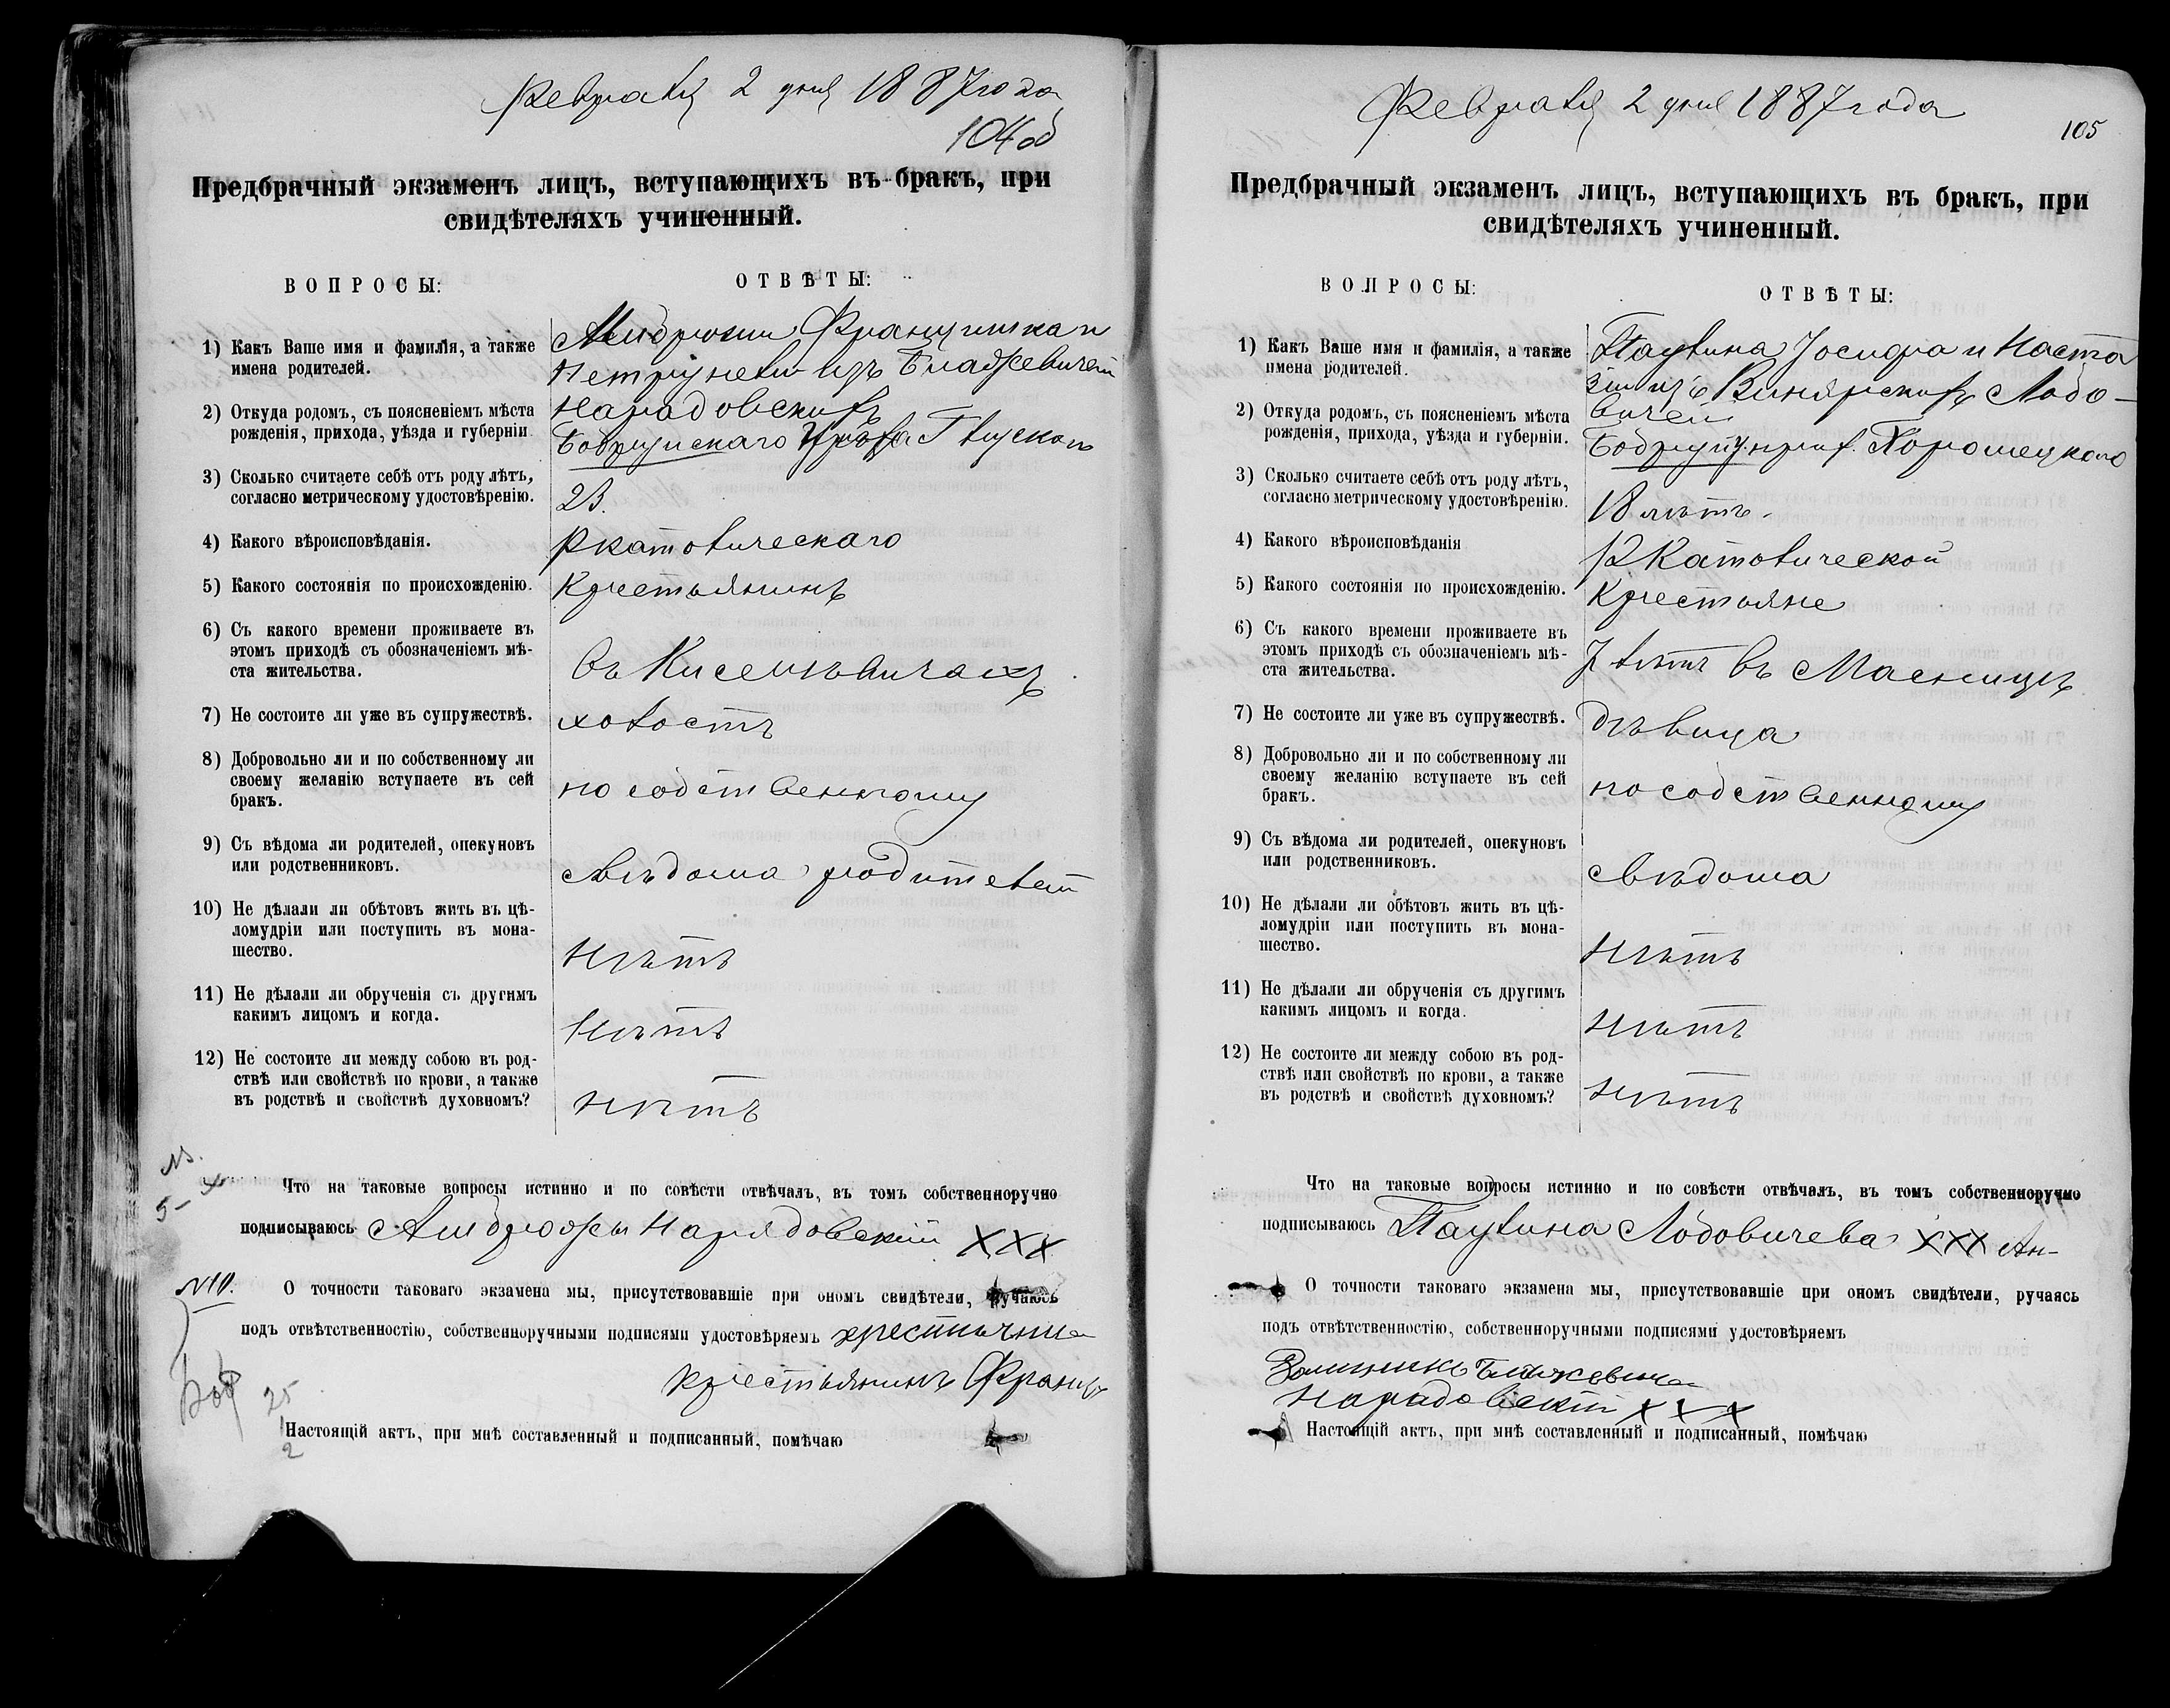 Февраля 2 дня 1887 года
104 об
Предбрачный экзаменъ лицъ, вступающихъ въ бракъ, при
свидѣтеляхъ учиненный.
ВОПРОСЫ:
ОТВѢТЫ:
1) Какъ Ваше имя и фамилія, а также
имена родителей.
Францишка и
Петрунели изъ
2) Откуда родомъ, съ поясненіемъ мѣста
рожденія, прихода, уѣзда и губерніи.
Нарадовскихъ
Бобруйскаго Глускаго
3) Сколько считаете себѣ отъ роду лѣтъ,
согласно метрическому удостовѣренію.
23.
4) Какого вѣроисповѣданія.
Ркатолическаго
5) Какого состоянія по происхожденію.
Крестьянинъ
6) Съ какого времени проживаете въ
этомъ приходѣ съ обозначеніемъ мѣ-
ста жительства.
въ Киселевичахъ
7) Не состоите ли уже въ супружествѣ.
холостъ
8) Добровольно ли и по собственному ли
своему желанію вступаете въ сей
бракъ.
по собственному
9) Съ вѣдома ли родителей, опекуновъ
или родственниковъ.
свѣдома родителей
10) Не дѣлали ли обѣтовъ жить въ цѣ-
ломудріи или поступить въ мона-
шество.
нѣтъ
11) Не дѣлали ли обрученія съ другимъ
какимъ лицомъ и когда.
нѣтъ
12) Не состоите ли между собою въ род-
ствѣ или свойствѣ по крови, а также
въ родствѣ и свойствѣ духовномъ?
нѣтъ
Что на таковые вопросы истинно и по совѣсти отвѣчалъ, въ томъ собственноручно
подписываюсь Амброжы Нарядовскій XXX
N 10.
О точности таковаго экзамена мы, присутствовавшіе при ономъ свидѣтели, ручаюсь
подъ отвѣтственностію, собственноручными подписями удостовѣряемъ
крестьянинъ Францъ
25
2
Настоящій актъ, при мнѣ составленный и подписанный, помѣчаю
Февраля 2 дня 1887 года
105
Предбрачный экзаменъ лицъ, вступающихъ въ бракъ, при
свидѣтеляхъ учиненный.
ВОПРОСЫ:
ОТВѢТЫ:
1) Какъ Ваше имя и фамилія, а также
имена родителей.
Паулина Іосифа и Наста
зіи изъ Винярскихъ Лобо-
вичей
2) Откуда родомъ, съ поясненіемъ мѣста
рожденія, прихода, уѣзда и губерніи.
Бобруй у. прих. Хорошецкаго
3) Сколько считаете себѣ отъ роду лѣтъ,
согласно метрическому удостовѣренію.
18 лѣтъ.
4) Какого вѣроисповѣданія
Р Католической
5) Какого состоянія по происхожденію.
Крестьяне
6) Съ какого времени проживаете въ
этомъ приходѣ съ обозначеніемъ мѣ-
ста жительства.
лѣтъ въ
7) Не состоите ли уже въ супружествѣ.
дѣвица
8) Добровольно ли и по собственному ли
своему желанію вступаете въ сей
бракъ.
по собственному
9) Съ вѣдома ли родителей, опекуновъ
или родственниковъ.
свѣдома
10) Не дѣлали ли обѣтовъ жить въ цѣ-
ломудріи или поступить въ мона-
шество.
нѣтъ
11) Не дѣлали ли обрученія съ другимъ
какимъ лицомъ и когда.
нѣтъ
12) Не состоите ли между собою въ род-
ствѣ или свойствѣ по крови, а также
въ родствѣ и свойствѣ духовномъ?
нѣтъ
Что на таковые вопросы истинно и по совѣсти отвѣчалъ, въ томъ собственноручно
подписываюсь Паулина Лобовичева XXX Ан-
О точности таковаго экзамена мы, присутствовавшіе при ономъ свидѣтели, ручаясь
подъ отвѣтственностію, собственноручными подписями удостовѣряемъ
Нарадовскій XXX
Настоящій актъ, при мнѣ составленный и подписанный, помѣчаю